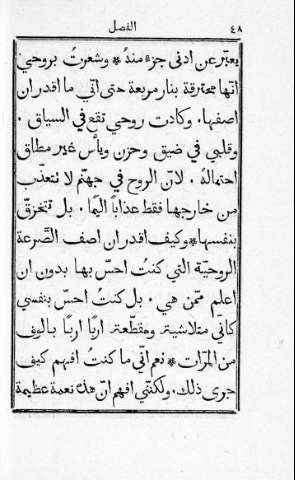 ٤٨ الفصل
يعبّر عن ادنى جزء منه * وشعرت بروحي
انها محترقة بنار مريعة حتى اني ما اقدر ان
اصفها . وكادت روحي تقع في السياق .
وقلبي في ضيق وحزن ويأس غير مطاق
احتماله . لان الروح في جهنم لا تتعذب
من خارجها فقط عذابا اليما . بل تتخزق
بنفسها * وكيف اقدر ان اصف الصّرعة
الروحيّة التي كنت احسّ بها بدون ان
اعلم ممّن هي . بل كنت احسّ بنفسي
كاني متلاشية ومقطّعة اربًا اربًا بالوف
من المرّات * نعم اني ما كنت افهم كيف
جرى ذلك . ولكنّني افهم ان هذه نعمة عظيمة